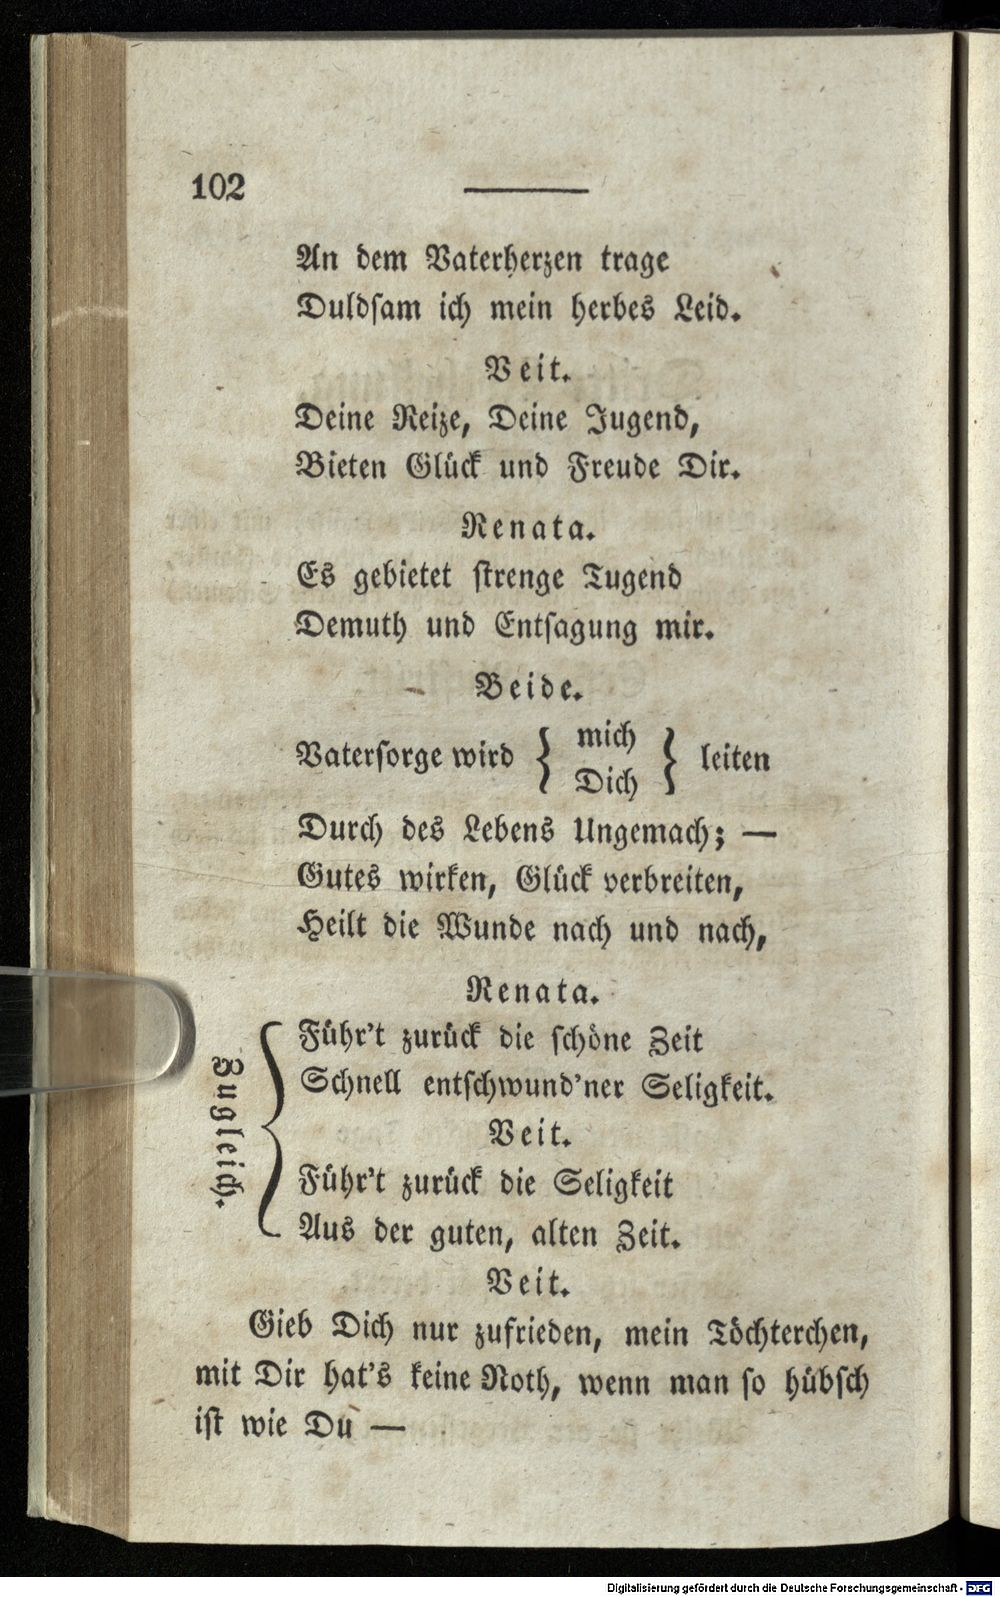 102
An dem Vaterherzen trage
Duldsam ich mein herbes Leid.
Veit.
Deine Reize, Deine Jugend,
Bieten Glück und Freude Dir.
Renata.
Es gebietet strenge Tugend
Demuth und Entsagung mir.
Beide.
Vatersorge wird { mich Dich } leiten
Durch des Lebens Ungemach; —
Gutes wirken, Glück verbreiten,
Heilt die Wunde nach und nach,
Zugleich.
Renata.
Führ't zurück die schöne Zeit
Schnell entschwund'ner Seligkeit.
Veit.
Führ't zurück die Seligkeit
Aus der guten, alten Zeit.
Veit.
Gieb Dich nur zufrieden, mein Töchterchen,
mit Dir hat's keine Noth, wenn man so hübsch
ist wie Du —
Digitalisierung gefördert durch die Deutsche Forschungsgemeinschaft - DFG